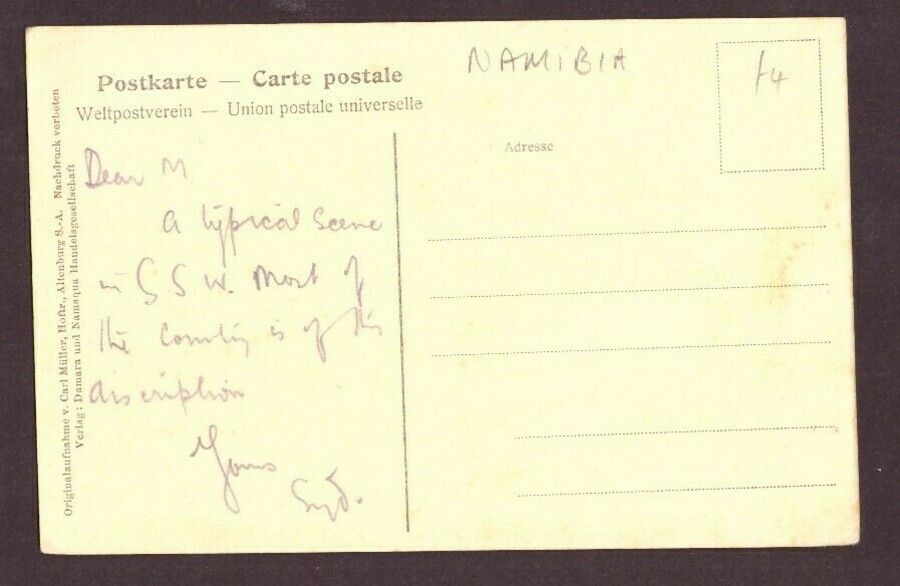 Postkarte — Carte postale
Weltpostverein — Union postale universelle
NAMIBIA
Adresse
Originalaufnahme v. Carl Müller, Hoflr., Altenburg S.-A. Nachdruck verboten
Verlag: Damara und Namaqua Handelsgesellschaft
Dear M
A typical Scene
in G S W. Most of
the Country is of this
discription
Yours
Syd.